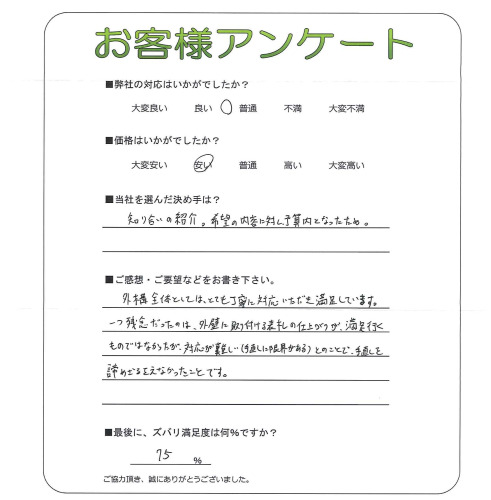 お客様アンケート
■弊社の対応はいかがでしたか？
大変良い 良い 普通 不満 大変不満
■価格はいかがでしたか？
大変安い 安い 普通 高い 大変高い
■当社を選んだ決め手は？
知り合いの紹介。希望の内容に対し予算内となったため。
■ご感想・ご要望などをお書き下さい。
外構全体としては、とても丁寧に対応いただき満足しています。
一つ残念だったのは、外壁に取付ける表札の仕上がりが、満足行く
ものではなかったが、対応が難しい(手直しに限界がある)とのことで、手直しを
諦めざるえなかったことです。
■最後に、ズバリ満足度は何％ですか？
75 ％
ご協力頂き、誠にありがとうございました。